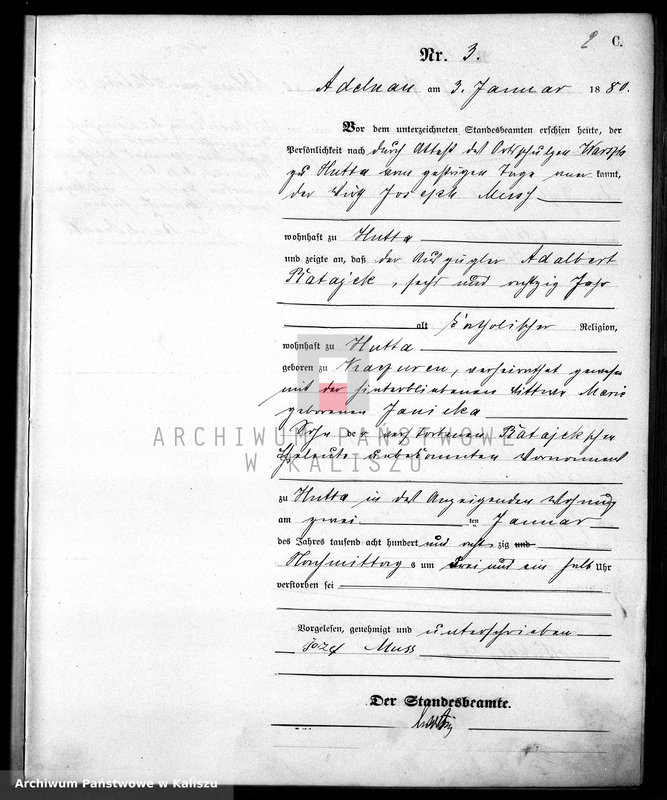 2 C.
Nr. 3.
Adelnau am 3. Januar 1880.
Vor dem unterzeichneten Standesbeamten erschien heute, der
Persönlichkeit nach durch Attest des Ortsschulzen
zu Hutta vom gestrigen Tage aner kannt,
der Wirth Joseph
wohnhaft zu Hutta
und zeigte an, daß der Auszügler Adalbert
Ratajek, sechs und achtzig Jahr
alt katholischer Religion,
wohnhaft zu Hutta
geboren zu verheirathet gewesen
mit der hinterbliebenen Wittwe Marie
geborenen Janicka
Sohn der verstorbenen Ratajekschen
Eheleute unbekannten Vornamens
zu Hutta in des Anzeigenden Wohnung
am zwei ten Januar
des Jahres tausend acht hundert und acht zig und
Nachmittag s um drei und ein halb Uhr
verstorben sei
Vorgelesen, genehmigt und unterschrieben
Jozef Muss
Der Standesbeamte.
ARCHIWUM PAŃSTWOWE
W KALISZU
Archiwum Państwowe w Kaliszu